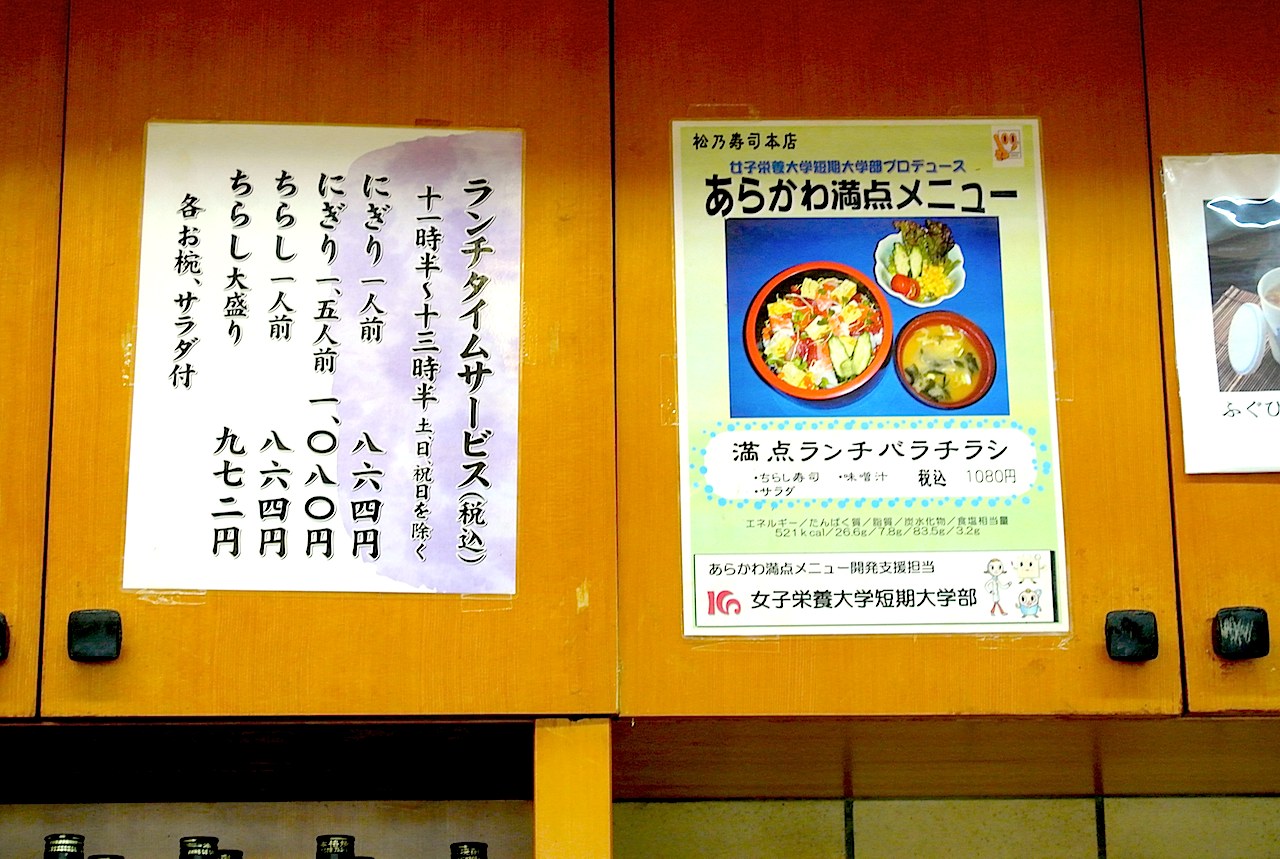 ランチタイムサービス(税込)
十一時半~十三時半 土、日、祝日を除く
にぎり 一人前 八六四円
にぎり 一、五人前 一、〇八〇円
ちらし 一人前 八六四円
ちらし大盛り 九七二円
各お椀、サラダ付
松乃寿司本店
女子栄養大学短期大学部プロデュース
あらかわ満点メニュー
満点ランチバラチラシ
・ちらし寿司 ・味噌汁 税込 1080円
・サラダ
エネルギー/たんぱく質/脂質/炭水化物/食塩相当量
521kcal/26.6g/7.8g/83.5g/3.2g
あらかわ満点メニュー開発支援担当
女子栄養大学短期大学部
ふぐひ